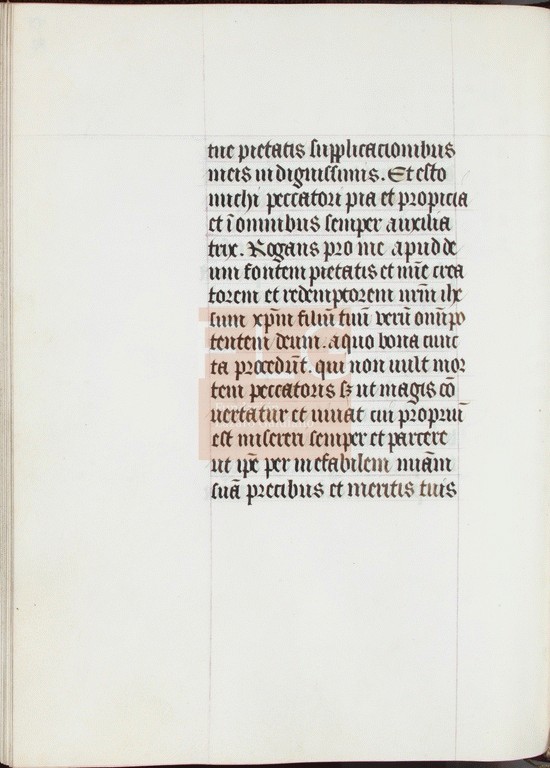 tue pietatis supplicacionibus
meis indignissimis. Et esto
michi peccatori pia et propicia
et ī omnibus semper auxilia
trix. Rogans pro me apud de
um fontem pietatis et mīe crea
torem et redemptorem nr̄m ihe
sum xp̄m filiū tuū verū omīpo
tentem deum. a quo bona cunc
ta procedūt. qui non uult mor
tem peccatoris sꝫ ut magis cō
uertatur et uiuat cui propriū
est misereri semper et parcere
ut ip̄e per inefabilem miām
suā precibus et meritis tuis